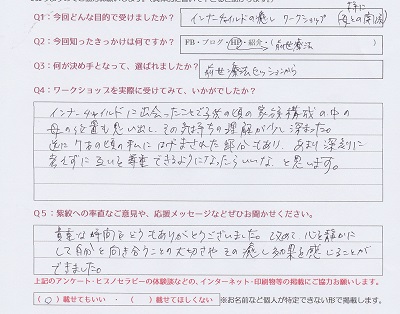 Q1：今回どんな目的で受けましたか？ インナーチャイルドの癒し ワークショップ 特に(母との関係)
Q2：今回知ったきっかけは何ですか？ FB・ブログ・HP・紹介・(前世療法
Q3：何が決め手となって、選ばれましたか？ 前世療法セッションから
Q4：ワークショップを実際に受けてみて、いかがでしたか？
インナーチャイルドに出会ったことで子供の頃の家族構成の中の
母の位置も思い出し、その気持ちの理解が少し深まった。
逆に7才の頃の私にはげまされた部分もあり、あまり深刻に
考えずに互いを尊重できるようになったらいいな、と思います。
Q5：紫紋への率直なご意見や、応援メッセージなどぜひお聞かせください。
貴重な時間をどうもありがとうございました。改めて心を静かに
して自分と向き合うことの大切さやその癒し効果を感じることが
できました。
上記のアンケート・ヒプノセラピーの体験談などの、インターネット・印刷物等の掲載にご協力お願いします。
(○)載せてもいい ・ ( )載せてほしくない ※お名前など個人が特定できない形で掲載します。